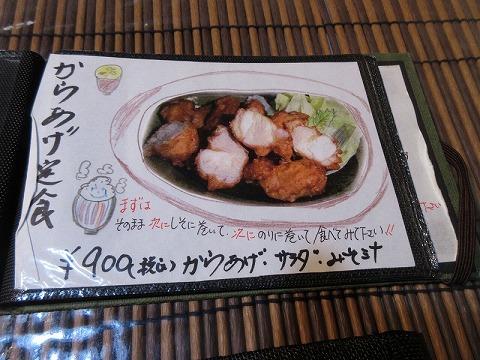 からあげ定食
まずは
そのまま 次にしそに巻いて、次にのりに巻いて食べてみて下さい!!
¥900(税込) からあげ・サラダ・みそ汁
ださい